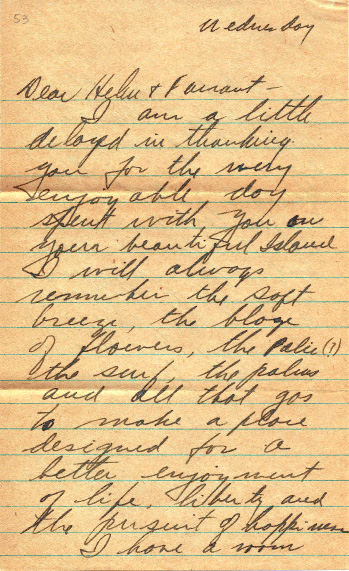 53
Wednesday
Dear Helen & Farrant -
I am a little
delayed in thanking
you for the very
enjoyable day
spent with you on
your beautiful Island
I will always
remember the soft
breeze, the blaze
of flowers, the Palie (?)
the surf, the palms
and all that goes
to make a place
designed for a
better enjoyment
of life, liberty and
the pursuit of happiness
I have a room